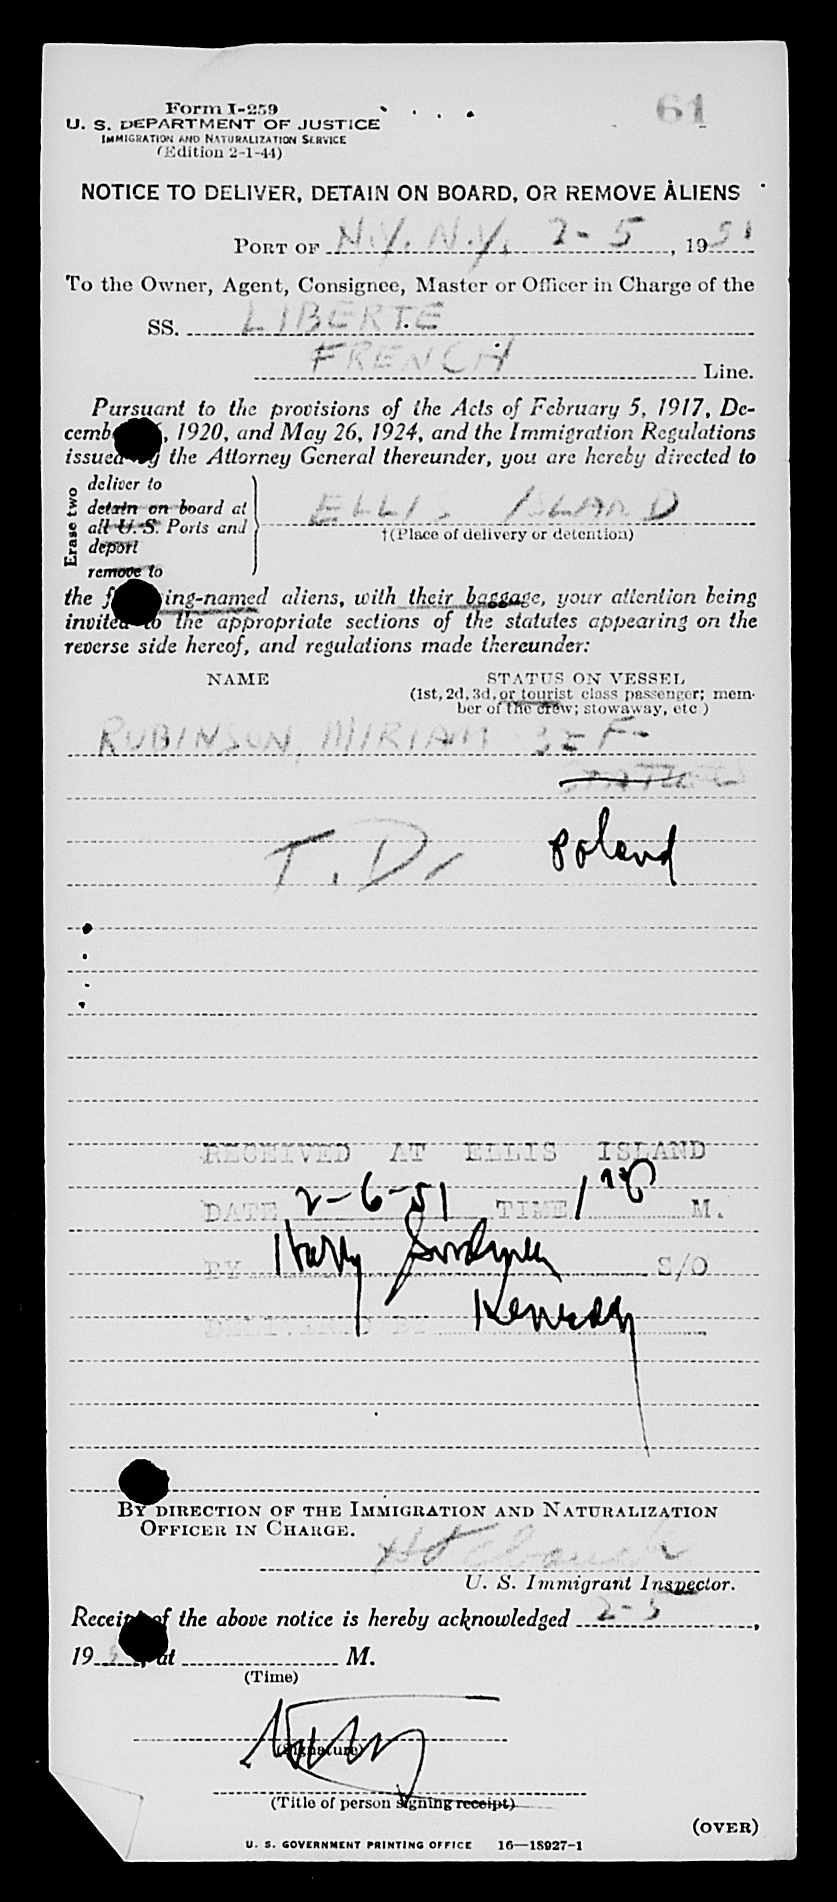 Form I-259
61
U. S. DEPARTMENT OF JUSTICE
IMMIGRATION AND NATURALIZATION SERVICE
(Edition 2-1-44)
NOTICE TO DELIVER, DETAIN ON BOARD, OR REMOVE ALIENS
PORT OF N.Y. N.Y. 2-5, 1951
To the Owner, Agent, Consignee, Master or Officer in Charge of the
SS. LIBERTE
FRENCH Line.
Pursuant to the provisions of the Acts of February 5, 1917, De-
cemb , 1920, and May 26, 1924, and the Immigration Regulations
issued by the Attorney General thereunder, you are hereby directed to
Erase two
deliver to
detain on board at
all U. S. Ports and
deport
remove to
ELLIS ISLAND
†(Place of delivery or detention)
the f ing-named aliens, with their baggage, your attention being
invited to the appropriate sections of the statutes appearing on the
reverse side hereof, and regulations made thereunder:
NAME STATUS ON VESSEL
(1st, 2d, 3d, or tourist class passenger; mem-
ber of the crew; stowaway, etc.)
RUBINSON, MIRIAM 35 F-
T. D. Poland
RECEIVED AT ELLIS ISLAND
DATE 2-6-51 TIME M.
BY Harry S/O
DELIVERED BY Kennedy
BY DIRECTION OF THE IMMIGRATION AND NATURALIZATION
OFFICER IN CHARGE.
U. S. Immigrant Inspector.
Receipt of the above notice is hereby acknowledged 2-5,
195 , at M.
(Time)
(Signature)
(Title of person signing receipt)
(OVER)
U. S. GOVERNMENT PRINTING OFFICE 16—18927-1